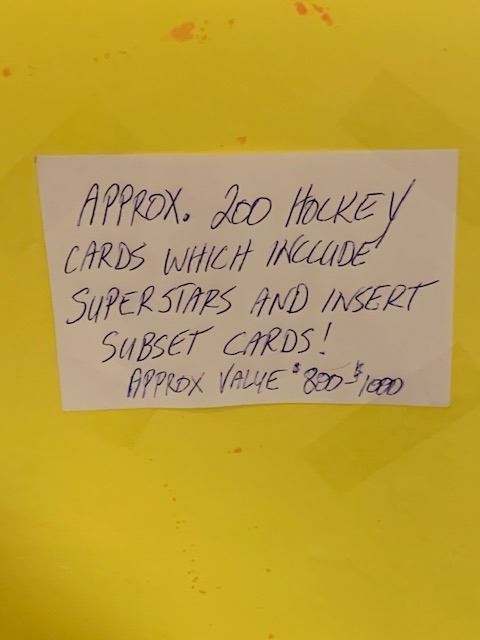 APPROX. 200 HOCKEY
CARDS WHICH INCLUDE
SUPERSTARS AND INSERT
SUBSET CARDS!
APPROX VALUE $800-$1000